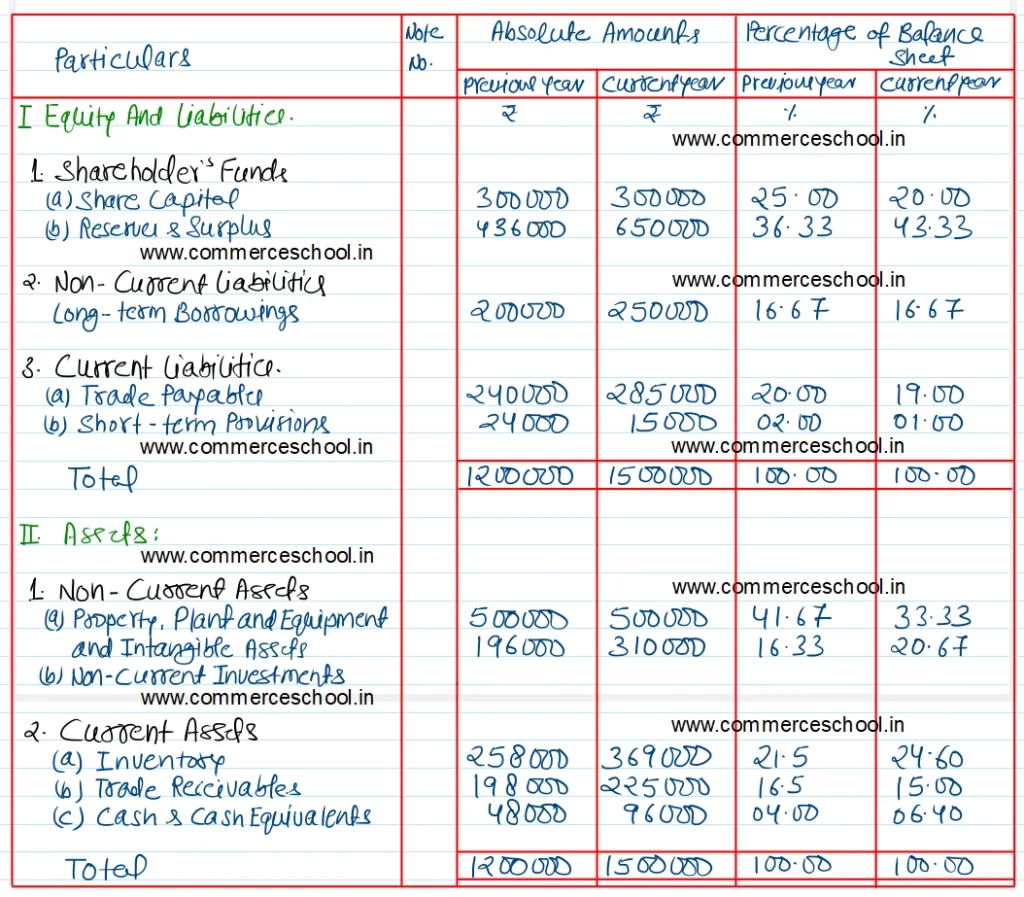 Particulars Note No. Absolute Amounts Percentage of Balance Sheet
Previous year Current year Previous year Current year
I Equity And Liabilities. ₹ ₹ % %
www.commerceschool.in
1. Shareholder's Funds
(a) Share Capital 300000 300000 25.00 20.00
(b) Reserves & Surplus 436000 650000 36.33 43.33
www.commerceschool.in
2. Non-Current Liabilities www.commerceschool.in
Long-term Borrowings 200000 250000 16.67 16.67
3. Current Liabilities.
(a) Trade Payables 240000 285000 20.00 19.00
(b) Short-term Provisions 24000 15000 02.00 01.00
www.commerceschool.in www.commerceschool.in
Total 1200000 1500000 100.00 100.00
II Assets:
www.commerceschool.in
1. Non-Current Assets www.commerceschool.in
(a) Property, Plant and Equipment 500000 500000 41.67 33.33
and Intangible Assets 196000 310000 16.33 20.67
(b) Non-Current Investments
www.commerceschool.in
2. Current Assets www.commerceschool.in
(a) Inventory 258000 369000 21.5 24.60
(b) Trade Receivables 198000 225000 16.5 15.00
(c) Cash & Cash Equivalents 48000 96000 04.00 06.40
Total 1200000 1500000 100.00 100.00